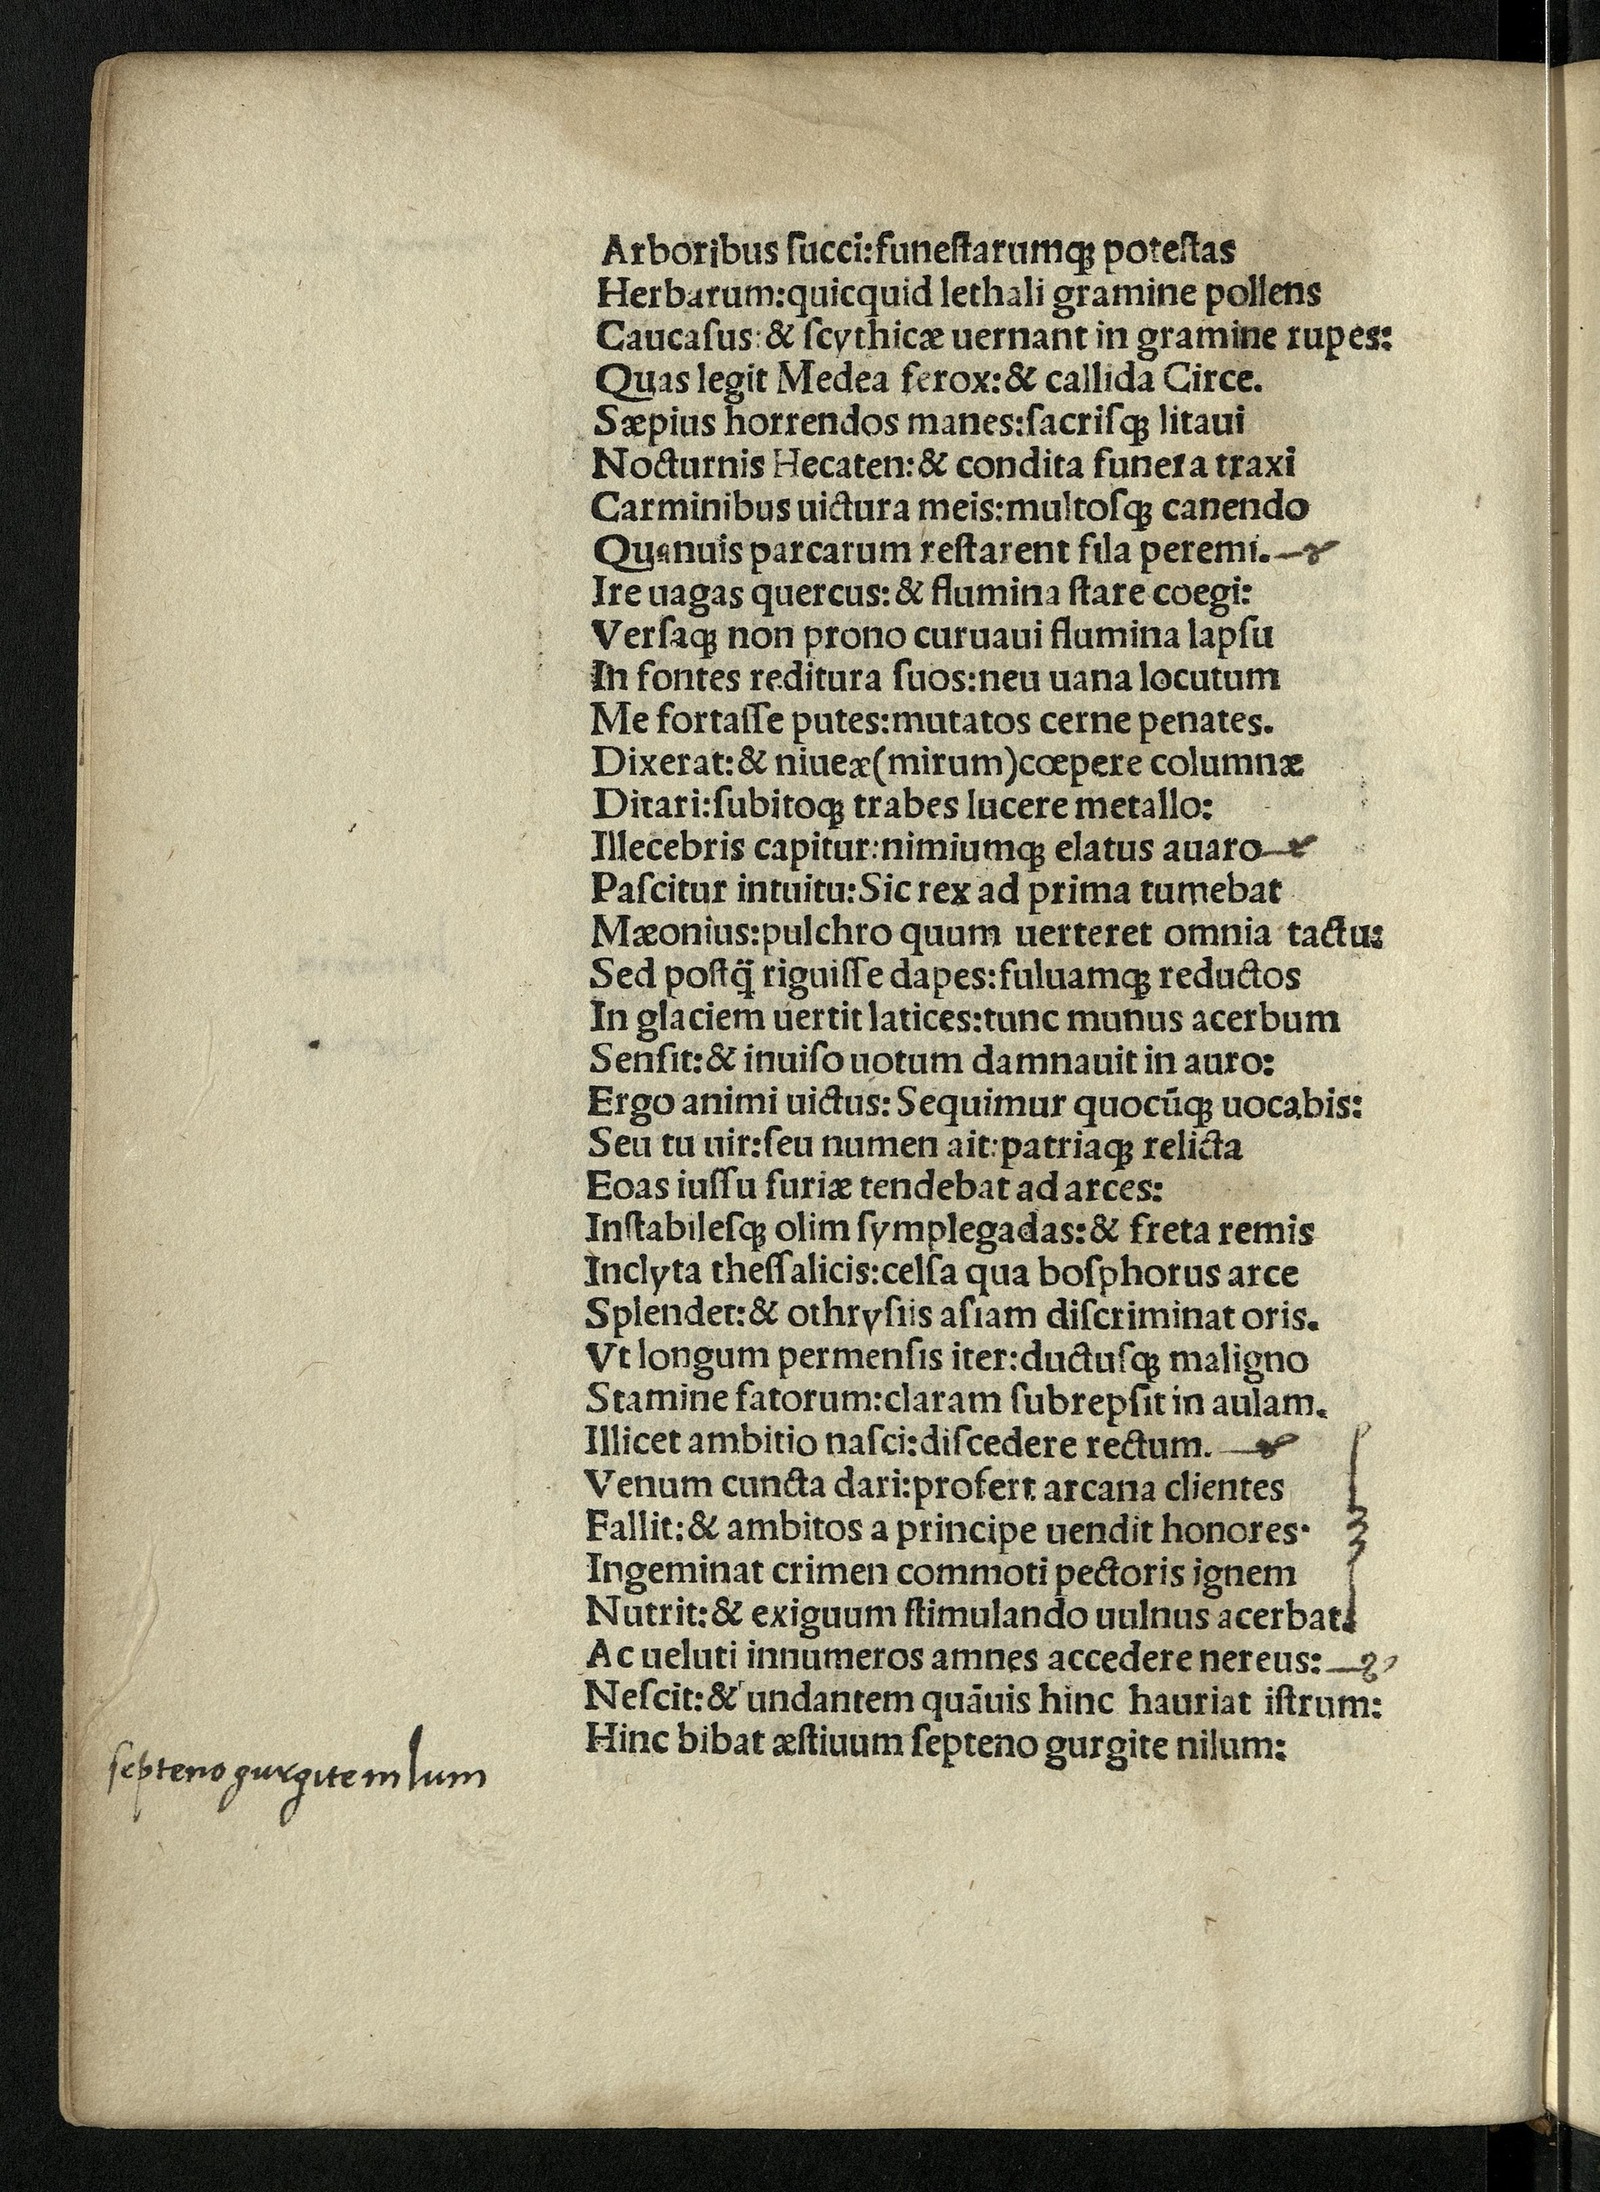 Arboribus ſucci:funeſtarumqꝫ poteſtas
Herbarum:quicquid lethali gramine pollens
Caucaſus:& ſcythicæ uernant in gramine rupes:
Quas legit Medea ferox:& callida Circe.
Sæpius horrendos manes:ſacriſqꝫ litaui
Nocturnis Hecaten:& condita funera traxi
Carminibus uictura meis:multoſqꝫ canendo
Quanuis parcarum reſtarent fila peremi.
Ire uagas quercus:& flumina ſtare coegi:
Verſaqꝫ non prono curuaui flumina lapſu
In fontes reditura ſuos:neu uana locutum
Me fortaſſe putes:mutatos cerne penates.
Dixerat:& niueæ(mirum)cœpere columnæ
Ditari:ſubitoqꝫ trabes lucere metallo:
Illecebris capitur:nimiumqꝫ elatus auaro
Paſcitur intuitu:Sic rex ad prima tumebat
Mæonius:pulchro quum uerteret omnia tactu:
Sed poſtq̃ riguiſſe dapes:fuluamqꝫ reductos
In glaciem uertit latices:tunc munus acerbum
Senſit:& inuiſo uotum damnauit in auro:
Ergo animi uictus:Sequimur quocūqꝫ uocabis:
Seu tu uir:ſeu numen ait:patriaqꝫ relicta
Eoas iuſſu furiæ tendebat ad arces:
Inſtabileſqꝫ olim ſymplegadas:& freta remis
Inclyta theſſalicis:celſa qua boſphorus arce
Splendet:& othryſiis aſiam diſcriminat oris.
Vt longum permenſis iter:ductuſqꝫ maligno
Stamine fatorum:claram ſubrepſit in aulam.
Illicet ambitio naſci:diſcedere rectum.
Venum cuncta dari:profert arcana clientes
Fallit:& ambitos a principe uendit honores·
Ingeminat crimen commoti pectoris ignem
Nutrit:& exiguum ſtimulando uulnus acerbat.
Ac ueluti innumeros amnes accedere nereus:
Neſcit:& undantem quāuis hinc hauriat iſtrum:
Hinc bibat æſtiuum ſepteno gurgite nilum:
ſepteno gurgite nilum